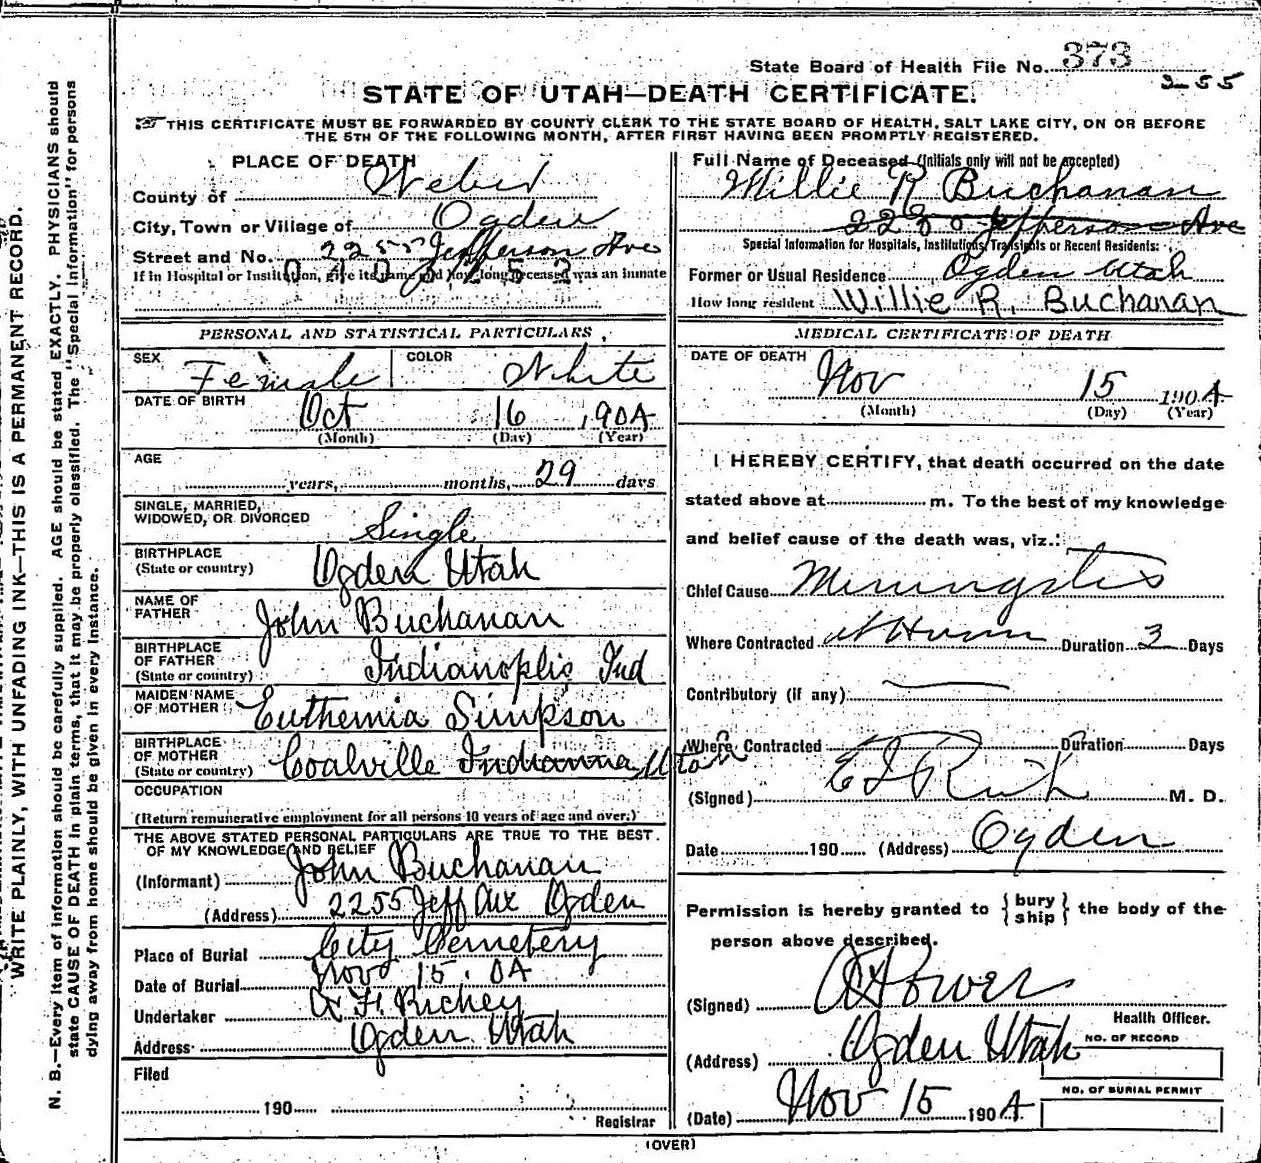 State Board of Health File No. 373
2-55
STATE OF UTAH—DEATH CERTIFICATE.
THIS CERTIFICATE MUST BE FORWARDED BY COUNTY CLERK TO THE STATE BOARD OF HEALTH, SALT LAKE CITY, ON OR BEFORE
THE 5TH OF THE FOLLOWING MONTH, AFTER FIRST HAVING BEEN PROMPTLY REGISTERED.
WRITE PLAINLY, WITH UNFADING INK—THIS IS A PERMANENT RECORD.
N. B.—Every item of information should be carefully supplied. AGE should be stated EXACTLY. PHYSICIANS should
state CAUSE OF DEATH in plain terms, that it may be properly classified. The "Special Information" for persons
dying away from home should be given in every instance.
PLACE OF DEATH
County of Weber
City, Town or Village of Ogden
Street and No. 2255 Jefferson Ave
If in Hospital or Institution, give its name and how long deceased was an inmate
PERSONAL AND STATISTICAL PARTICULARS
SEX Female COLOR White
DATE OF BIRTH Oct 16 1904
(Month) (Day) (Year)
AGE
years, months, 29 days
SINGLE, MARRIED,
WIDOWED, OR DIVORCED Single
BIRTHPLACE
(State or country) Ogden Utah
NAME OF
FATHER John Buchanan
BIRTHPLACE
OF FATHER
(State or country) Indianoplis Ind
MAIDEN NAME
OF MOTHER Euthemia Simpson
BIRTHPLACE
OF MOTHER
(State or country) Coalville Indianna Utah
OCCUPATION
(Return remunerative employment for all persons 10 years of age and over.)
THE ABOVE STATED PERSONAL PARTICULARS ARE TRUE TO THE BEST
OF MY KNOWLEDGE AND BELIEF
(Informant) John Buchanan
(Address) 2255 Jeff Ave Ogden
Place of Burial City Cemetery
Date of Burial Nov 15. 04
Undertaker Richey
Address Ogden Utah
Filed
190
Registrar
Full Name of Deceased (Initials only will not be accepted)
Willie R Buchanan
2280 Jefferson Ave
Special Information for Hospitals, Institutions, Transients or Recent Residents:
Former or Usual Residence Ogden Utah
How long resident Willie R. Buchanan
MEDICAL CERTIFICATE OF DEATH
DATE OF DEATH Nov 15 1904
(Month) (Day) (Year)
I HEREBY CERTIFY, that death occurred on the date
stated above at m. To the best of my knowledge
and belief cause of the death was, viz.:
Chief Cause Meningitis
Where Contracted at Home Duration 3 Days
Contributory (if any) —
Where Contracted Duration Days
(Signed) M. D.
Date 190 (Address) Ogden
Permission is hereby granted to { bury ship } the body of the
person above described.
(Signed)
Health Officer.
(Address) Ogden Utah
NO. OF RECORD
NO. OF BURIAL PERMIT
(Date) Nov 15 1904
(OVER)